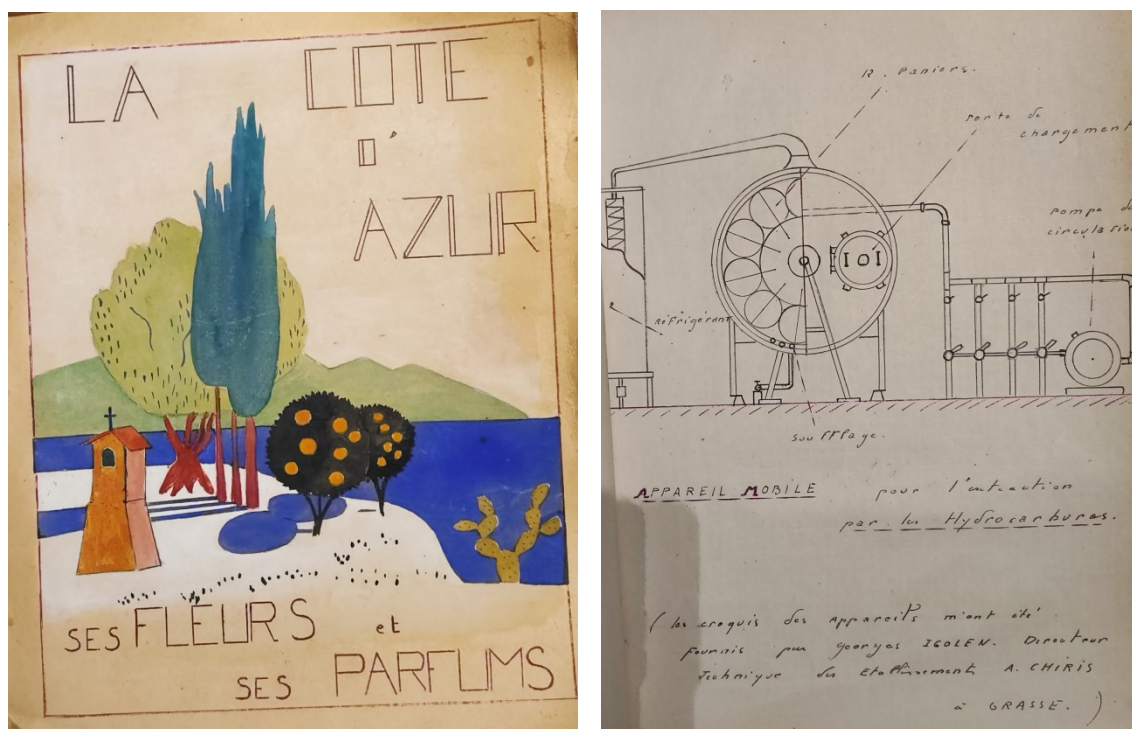 LA COTE
D'
AZUR
SES FLEURS et
SES PARFUMS
R. Paniers.
Porte de
chargement
Pompe de
circulation
Réfrigérant
soufflage.
APPAREIL MOBILE pour l'extraction
par les Hydrocarbures.
(les croquis des appareils m'ont été
fournis par georges IGOLEN. Directeur
Technique des Etablissements A. CHIRIS
à GRASSE.)